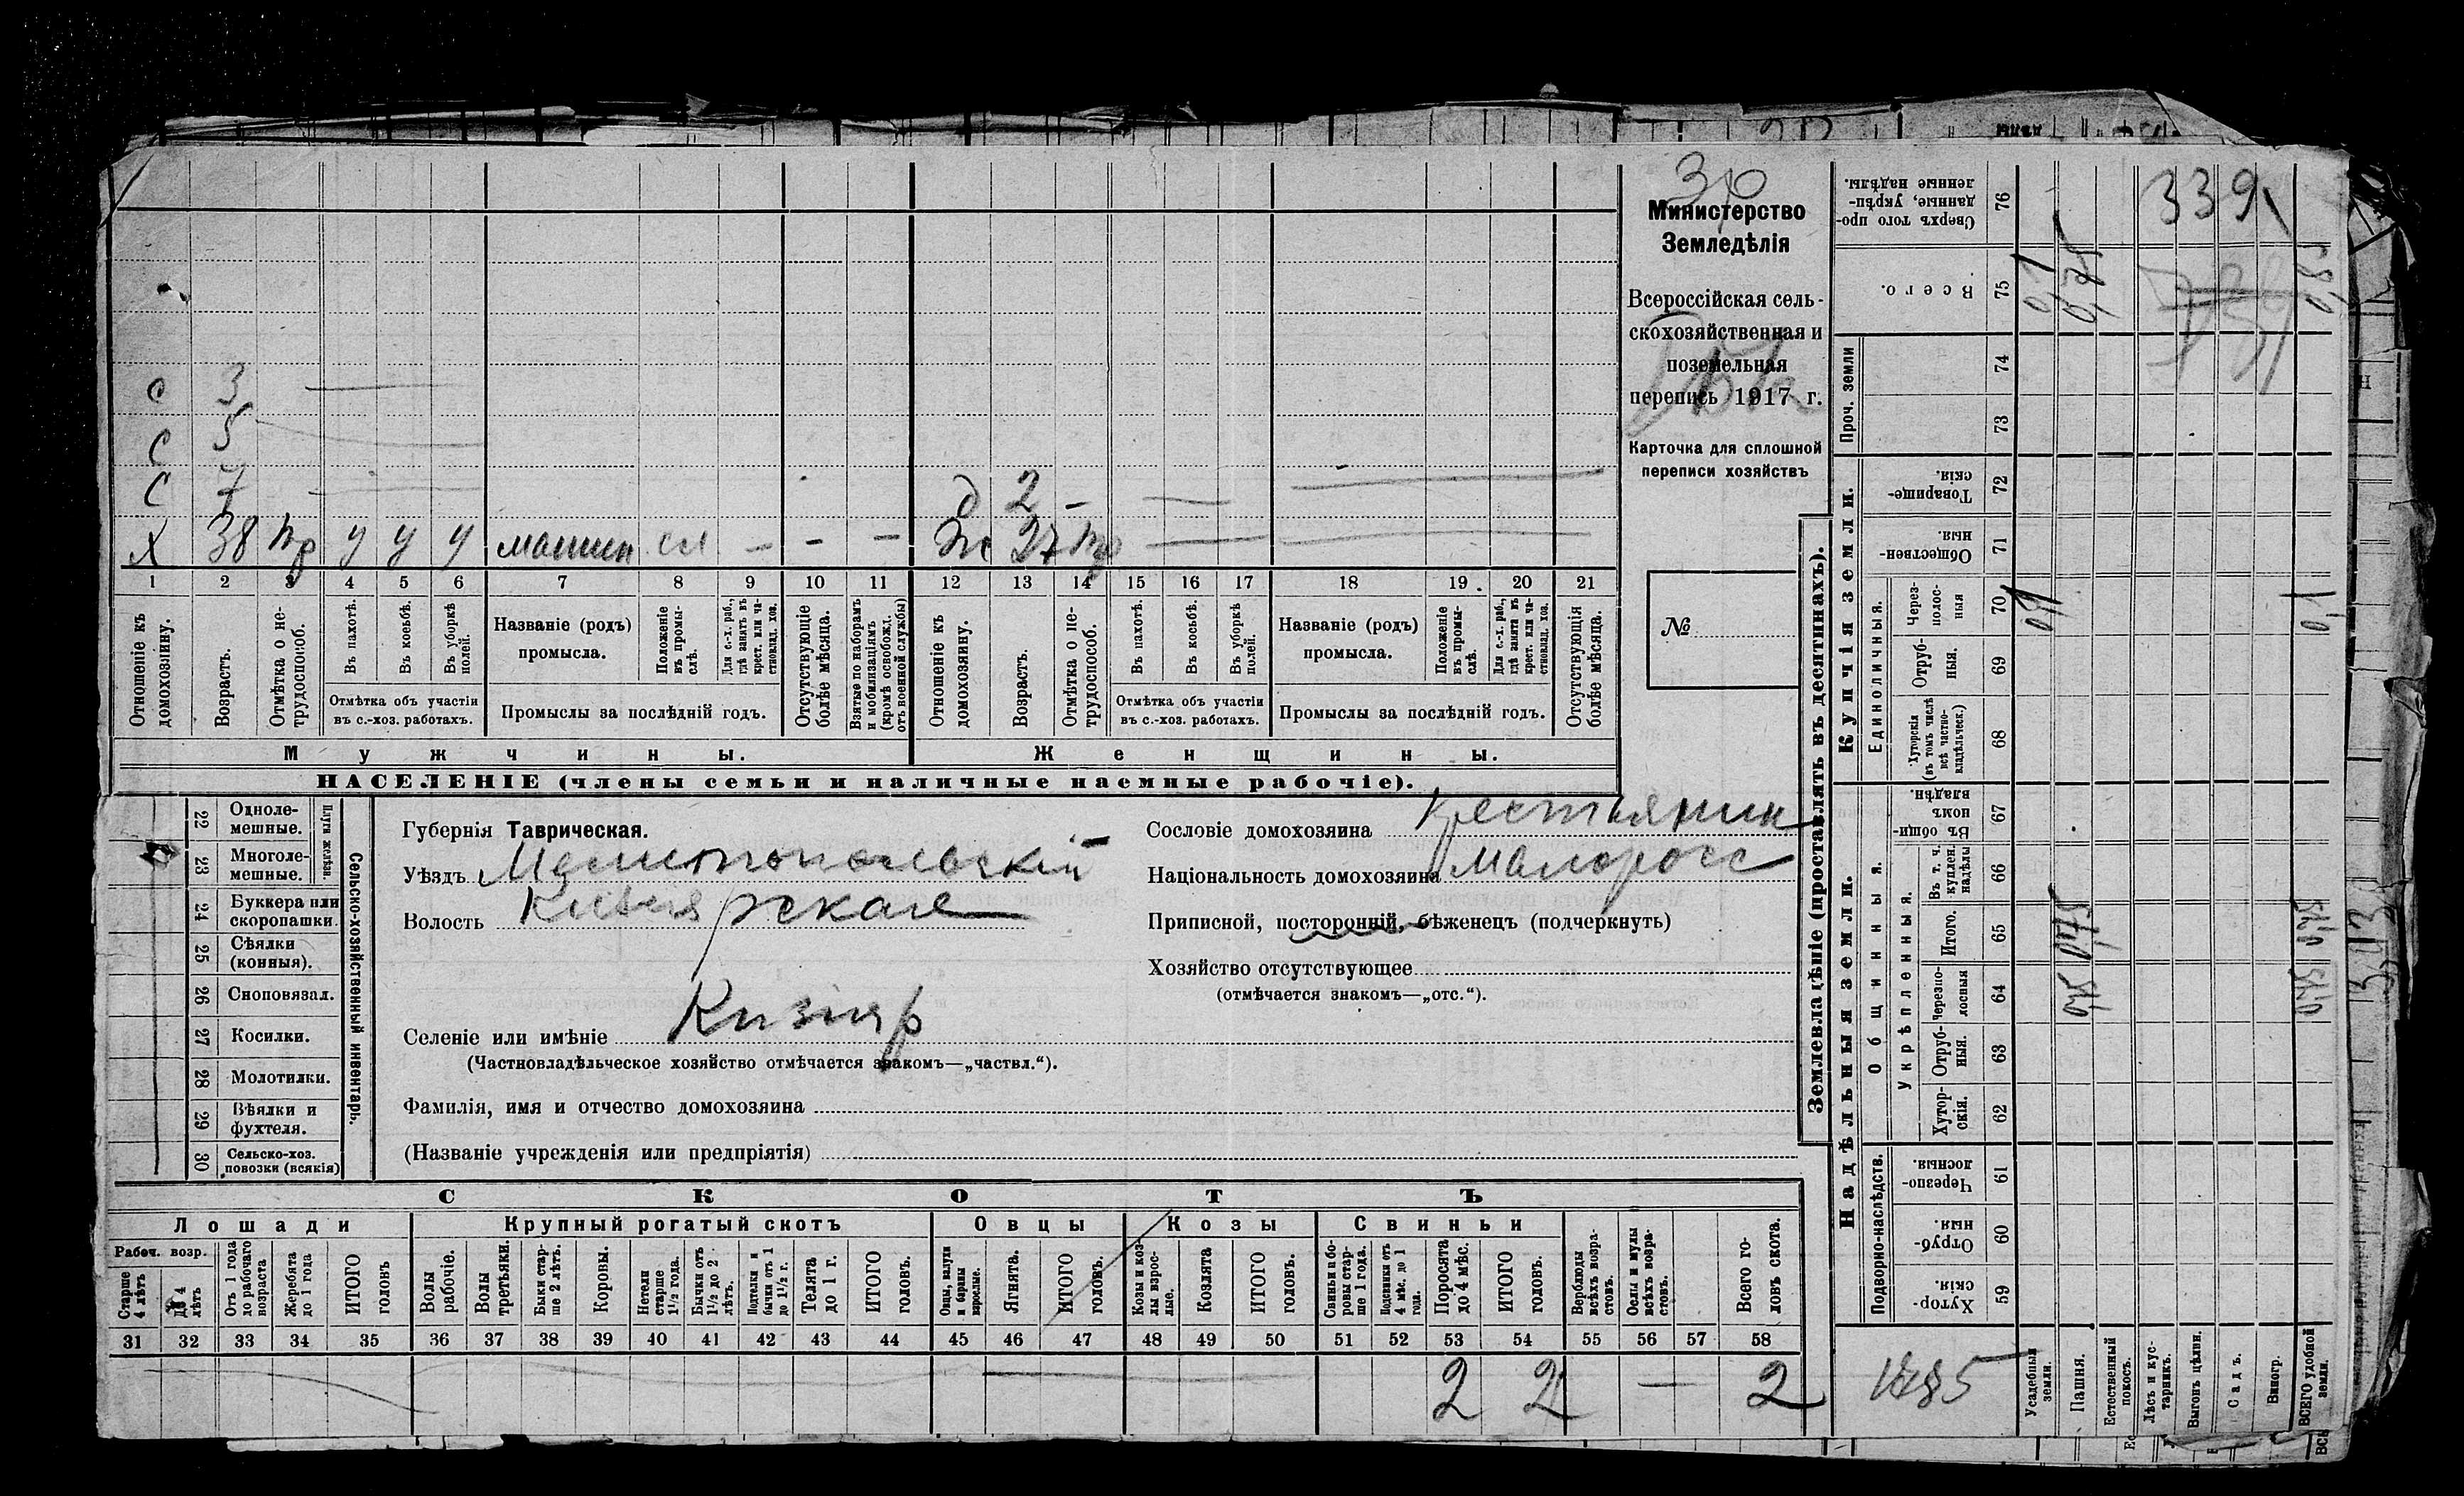 339
Министерство
Земледѣлія
Всероссійская сель-
скохозяйственная и
поземельная
перепись 1917 г.
Карточка для сплошной
переписи хозяйствъ
№
с 3 —
с 5
с 7 — д 2 —
х 38 у у у машин сл — — — ж 27
1 2 3 4 5 6 7 8 9 10 11 12 13 14 15 16 17 18 19 20 21
Отношеніе къ домохозяину.
Возрастъ.
Отмѣтка о не-трудоспособ.
Въ пахотѣ.
Въ косьбѣ.
Въ уборкѣ полей.
Отмѣтка объ участіи
въ с.-хоз. работахъ.
Названіе (родъ)
промысла.
Положеніе въ промы-слѣ.
Для с.-х. раб., гдѣ занятъ въ крест. или ча-стновлад. хоз.
Промыслы за послѣдній годъ.
Отсутствующіе болѣе мѣсяца.
Взятые по наборамъ и мобилизаціямъ (кромѣ освобожд. отъ военной службы)
Отношеніе къ домохозяину.
Возрастъ.
Отмѣтка о не-трудоспособ.
Въ пахотѣ.
Въ косьбѣ.
Въ уборкѣ полей.
Отмѣтка объ участіи
въ с.-хоз. работахъ.
Названіе (родъ)
промысла.
Положеніе въ промы-слѣ.
Для с.-х. раб., гдѣ занята въ крест. или ча-стновлад. хоз.
Промыслы за послѣдній годъ.
Отсутствующія болѣе мѣсяца.
Мужчины.
Женщины.
НАСЕЛЕНІЕ (члены семьи и наличные наемные рабочіе).
Сельско-хозяйственный инвентарь.
Плуги желѣзн.
22 Одноле-мешные.
23 Многоле-мешные.
24 Буккера или скоропашки.
25 Сѣялки (конныя).
26 Сноповязал.
27 Косилки.
28 Молотилки.
29 Вѣялки и фухтеля.
30 Сельско-хоз. повозки (всякія)
Губернія Таврическая.
Уѣздъ Мелитопольскій
Волость Кизіярская
Селеніе или имѣніе Кизіяр
(Частновладѣльческое хозяйство отмѣчается знакомъ—„частвл.“).
Фамилія, имя и отчество домохозяина
(Названіе учрежденія или предпріятія)
Сословіе домохозяина крестьянин
Національность домохозяина малоросс
Приписной, посторонній, бѣженецъ (подчеркнуть)
Хозяйство отсутствующее
(отмѣчается знакомъ—„отс.“).
СКОТЪ
Лошади
Крупный рогатый скотъ
Овцы
Козы
Свиньи
Рабоч. возр.
Старше 4 лѣтъ
До 4 лѣтъ
Отъ 1 года до рабочаго возраста
Жеребята до 1 года
ИТОГО головъ
Волы рабочіе.
Волы третьяки.
Быки стар-ше 2 лѣтъ.
Коровы.
Нетели старше 1½ года.
Бычки отъ 1½ до 2 лѣтъ.
Нетелки и бычки отъ 1 до 1½ г.
Телята до 1 г.
ИТОГО головъ.
Овцы, валухи и бараны взрослые.
Ягнята.
ИТОГО головъ.
Козы и коз-лы взрос-лые.
Козлята
ИТОГО головъ.
Свиньи и бо-ровы стар-ше 1 года.
Подсвинки отъ 4 мѣс. до 1 года.
Поросята до 4 мѣс.
ИТОГО головъ.
Верблюды всѣхъ возра-стовъ.
Ослы и мулы всѣхъ возра-стовъ.
Всего го-ловъ скота.
31 32 33 34 35 36 37 38 39 40 41 42 43 44 45 46 47 48 49 50 51 52 53 54 55 56 57 58
2 2 — 2
Землевладѣніе (проставлять въ десятинахъ).
Надѣльныя земли.
Купчія земли.
Проч. земли
Подворно-наслѣдств.
Общинныя.
Укрѣпленныя.
Единоличныя.
59 Хутор-скія.
60 Отруб-ныя.
61 Черезпо-лосныя.
62 Хутор-скія.
63 Отруб-ныя.
64 Черезпо-лосныя
65 Итого.
66 Въ т. ч. куплен. надѣлы
67 Въ общин-номъ владѣн.
68 Хуторскія (въ томъ числѣ всѣ частно-владѣльческ.)
69 Отруб-ныя.
70 Через-полос-ныя
71 Обществен-ныя
72 Товарище-скія.
73
74
75 Всего.
76 Сверхъ того про-данные, укрѣп-ленные надѣлы.
Усадебныя земли.
Пашня.
Естественный покосъ.
Лѣсъ и кус-тарникъ.
Выгонъ цѣлин.
Садъ.
Виногр.
ВСЕГО удобной земли.